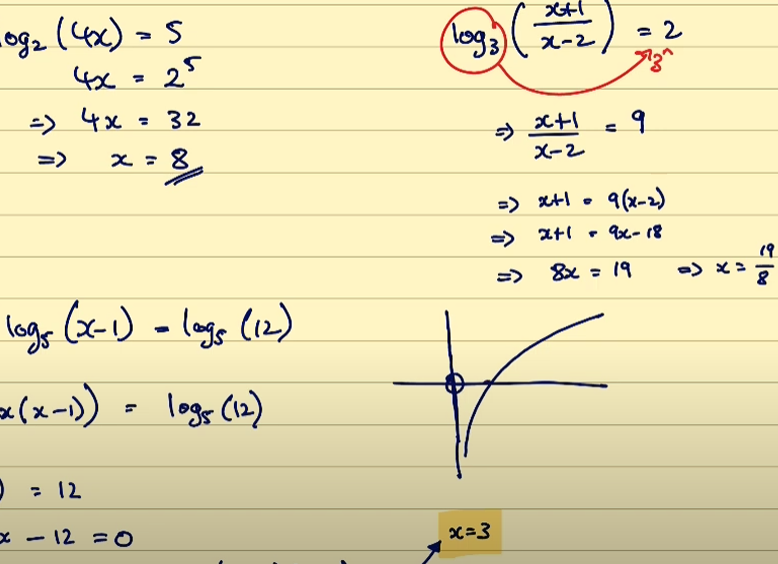 log₂(4x) = 5
4x = 2⁵
=> 4x = 32
=> x = 8
log₃((x+1)/(x-2)) = 2
3^
=> (x+1)/(x-2) = 9
=> x+1 = 9(x-2)
=> x+1 = 9x-18
=> 8x = 19 => x = 19/8
log₅(x-1) = log₅(12)
x(x-1)) = log₅(12)
) = 12
x - 12 = 0
x=3